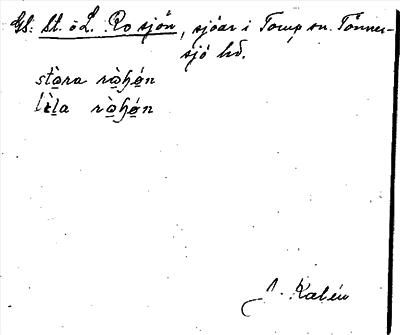 Gs: St. o L. Rosjön, sjöar i Torup sn. Tönner-
sjö hd.
stò̱ra rò̱ɧó̱n
lì̱la rò̱ɧó̱n
J. Kalén